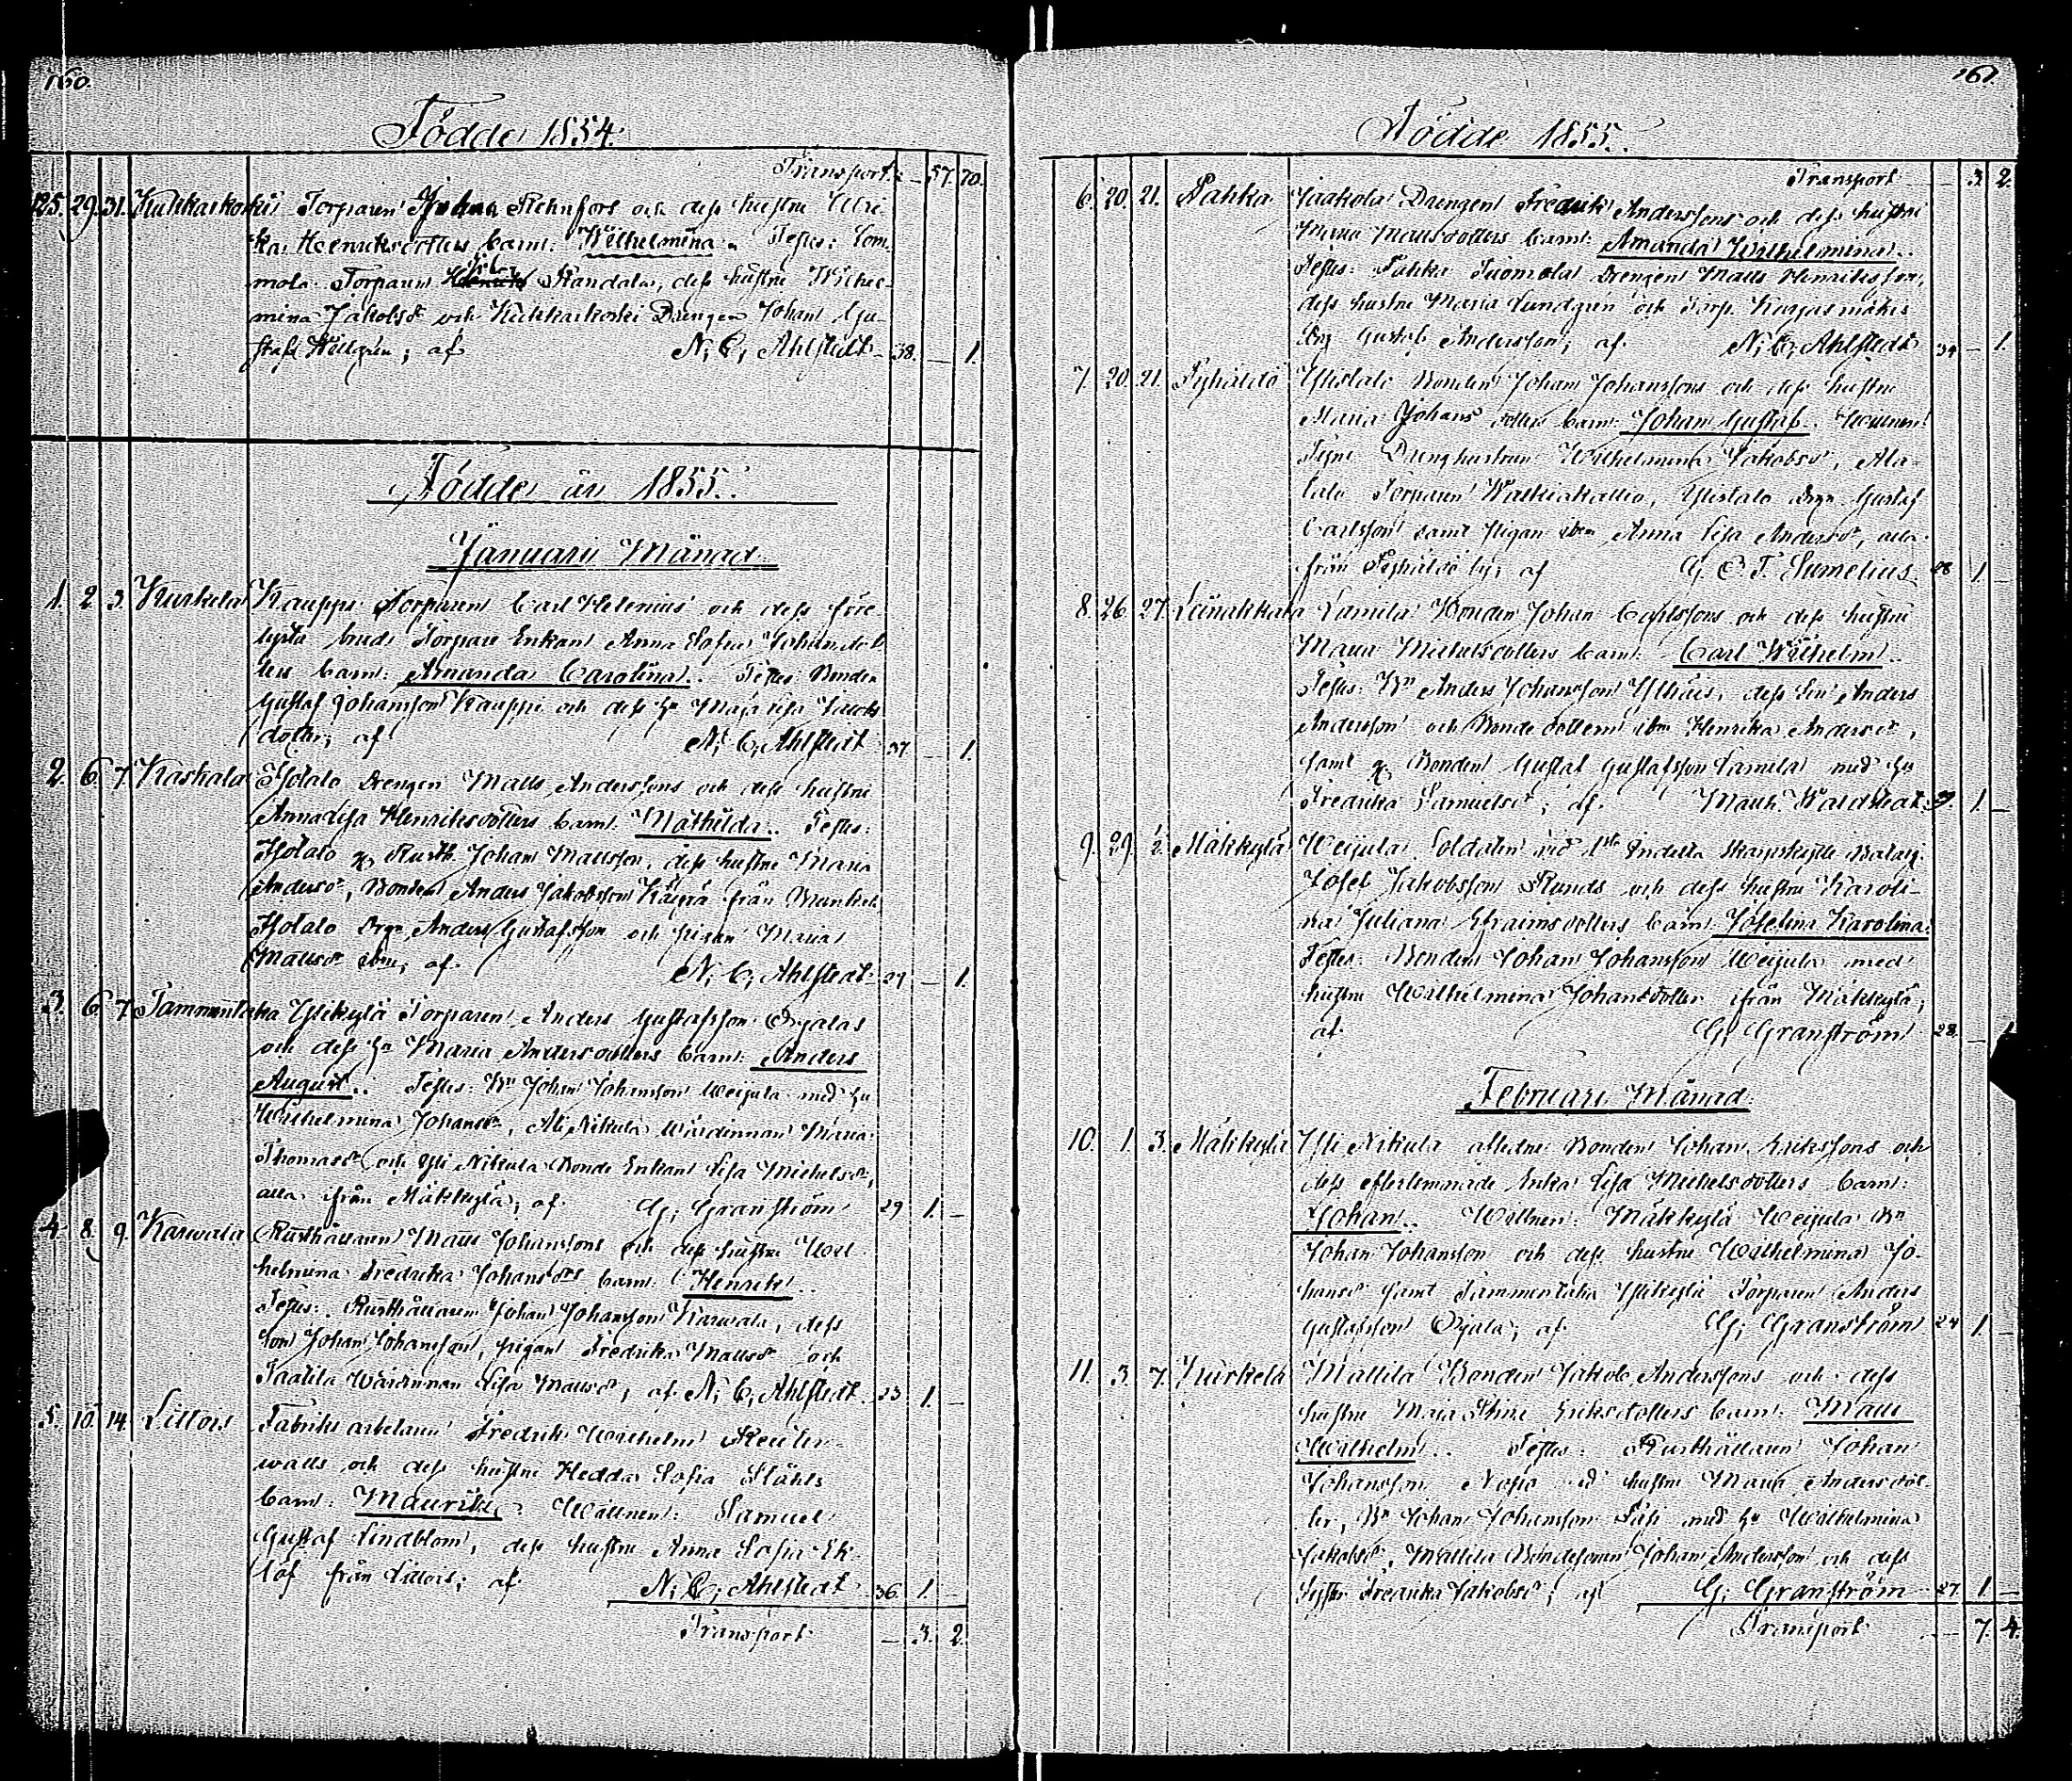 160.
Födde 1854.
Transport: – 57. 70.
125. 29. 31. Kuhkarkoski Torparen Johan Rehnfors och dess hustru Ulri-
ka Henriksdotters barn: Wilhelmina. Testes: Tom-
mola Torparen Randala, dess hustru Wilhel-
mina Jakobsdr och Kuhkarkoski Drengen Johan Gu-
staf Hellgren; af N. C. Ahlstedt 38. – 1.
Födde år 1855.
Januari Månad.
1. 2. 3. Kurkela Kauppi Torparen Carl Helenius och dess före
brud Torpare Enkan Anna Sofia Johansdot-
ters barn: Amanda Carolina. Testes: Bonden
Gustaf Johansson Kauppi och dess hu Maja Lisa Jacobs
dotter; af N. C. Ahlstedt 37 – 1.
2. 6. 7. Kaskala Isotalo Drengen Matts Anderssons och dess hustru
Annalisa Henriksdotters barn: Mathilda. Testes:
Isotalo Rusth. Johan Mattsson, dess hustru Maria
Andersdr, Bonden Anders Jakobsson från
Isotalo Drgn Anders Gustafsson och pigan Maria
Mattsdr ibm; af N. C. Ahlstedt 27 – 1.
3. 6. 7. Tammentaka Ylikylä Torparen Anders Gustafsson Ojalas
och dess hu Maria Andersdotters barn: Anders
August. Testes: Bn Johan Johansson Weijula med hu
Wilhelmina Johansdr, Ali Nikula Wärdinnan Maria
Thomasdr och Yli Nikula Bonde Enkan Lisa Michelsdr,
alla ifrån Mäkkylä; af G. Granström 29 1. –
4. 8. 9. Karwala Rusthållaren Matts Johanssons och dess hustru Wil-
helmina Fredrika Johansdrs barn: Henrik.
Testes: Rusthållaren Johan Johansson Karwala, dess
son Johan Johansson, pigan Fredrika Mattsdr och
Taatila Wärdinnan Lisa Mattsdr; af N. C. Ahlstedt 23 1. –
5. 10. 14. Littois Fabriks arbetaren Fredrik Wilhelm Reuter-
walls och dess hustru Hedda Sofia Ståhls
barn: Maurits. Wittnen: Samuel
Gustaf Lindblom, dess hustru Anna Sofia Ek-
löf från Littois; af N. C. Ahlstedt 36. 1.
Transport – 3. 2.
161.
Födde 1855.
Transport – 3. 2.
6. 20. 21. Pahka Jaakola Drengen Fredrik Anderssons och dess hustru
Maria Mattsdotters barn: Amanda Wilhelmina.
Testes: Pahka Tuomola Drengen Matts Henriksson,
dess hustru Maria Lundgren och Torp.
Drg Gustaf Andersson; af N. C. Ahlstedt 34 – 1.
7. 20. 21. Pyhältö Ylistalo Bonden Johan Johanssons och dess hustru
Maria Johans dotters barn: Johan Gustaf. Wittnen:
Drenghustrun Wilhelmina Jakobsdr, Ala-
talo Torparen Ylistalo Drgn Gustaf
Carlsson samt pigan ibm Anna Lisa Andersdr, alla
från Pyhältö by; af G. E. T. Sumelius 28 1. –
8. 26. 27. Leinakkala Tamila Bonden Johan Carlssons och dess hustru
Maria Michelsdotters barn: Carl Wilhelm.
Testes: Bn Anders Johansson dess son Anders
Andersson och Bonde dottern ibm Henrika Andersdr,
samt Bonden Gustaf Gustafsson Tamila med hu
Fredrika Samuelsdr; af Waldstedt 39. 1. –
9. 29. ½. Mäkkylä Weijula Soldaten vid 1sta Indelta skarpskytte Batalj.
Josef Jakobsson Runds och dess hustru Karoli-
na Juliana Efraimsdotters barn: Josefina Karolina.
Testes: Bonden Johan Johansson Weijula med
hustru Wilhelmina Johansdotter ifrån Mäkkylä;
af G. Granström 28. –
Februari Månad.
10. 1. 3. Mäkkylä Yli Nikula aflidne Bonden Johan Erikssons och
dess efterlemnade Enka Lisa Michelsdotters barn:
Johan. Wittnen: Mäkkylä Weijula Bn
Johan Johansson och dess hustru Wilhelmina Jo-
hansdr samt Tammentaka Ylikylä Torparen Anders
Gustafsson Ojala; af G. Granström 24 1. –
11. 3. 7. Kurkela Mattila Bonden Jakob Anderssons och dess
hustru Maja Stina Eriksdotters barn: Matts
Wilhelm. Testes: Rusthållaren Johan
Johansson hustru Maria Andersdot-
ter, Bn Johan Johansson med hu Wilhelmina
Jakobsdr, Mattila Bondesonen Johan Andersson och dess
syster Fredrika Jakobsdr; af G. Granström 27 1. –
Transport – 7. 4.